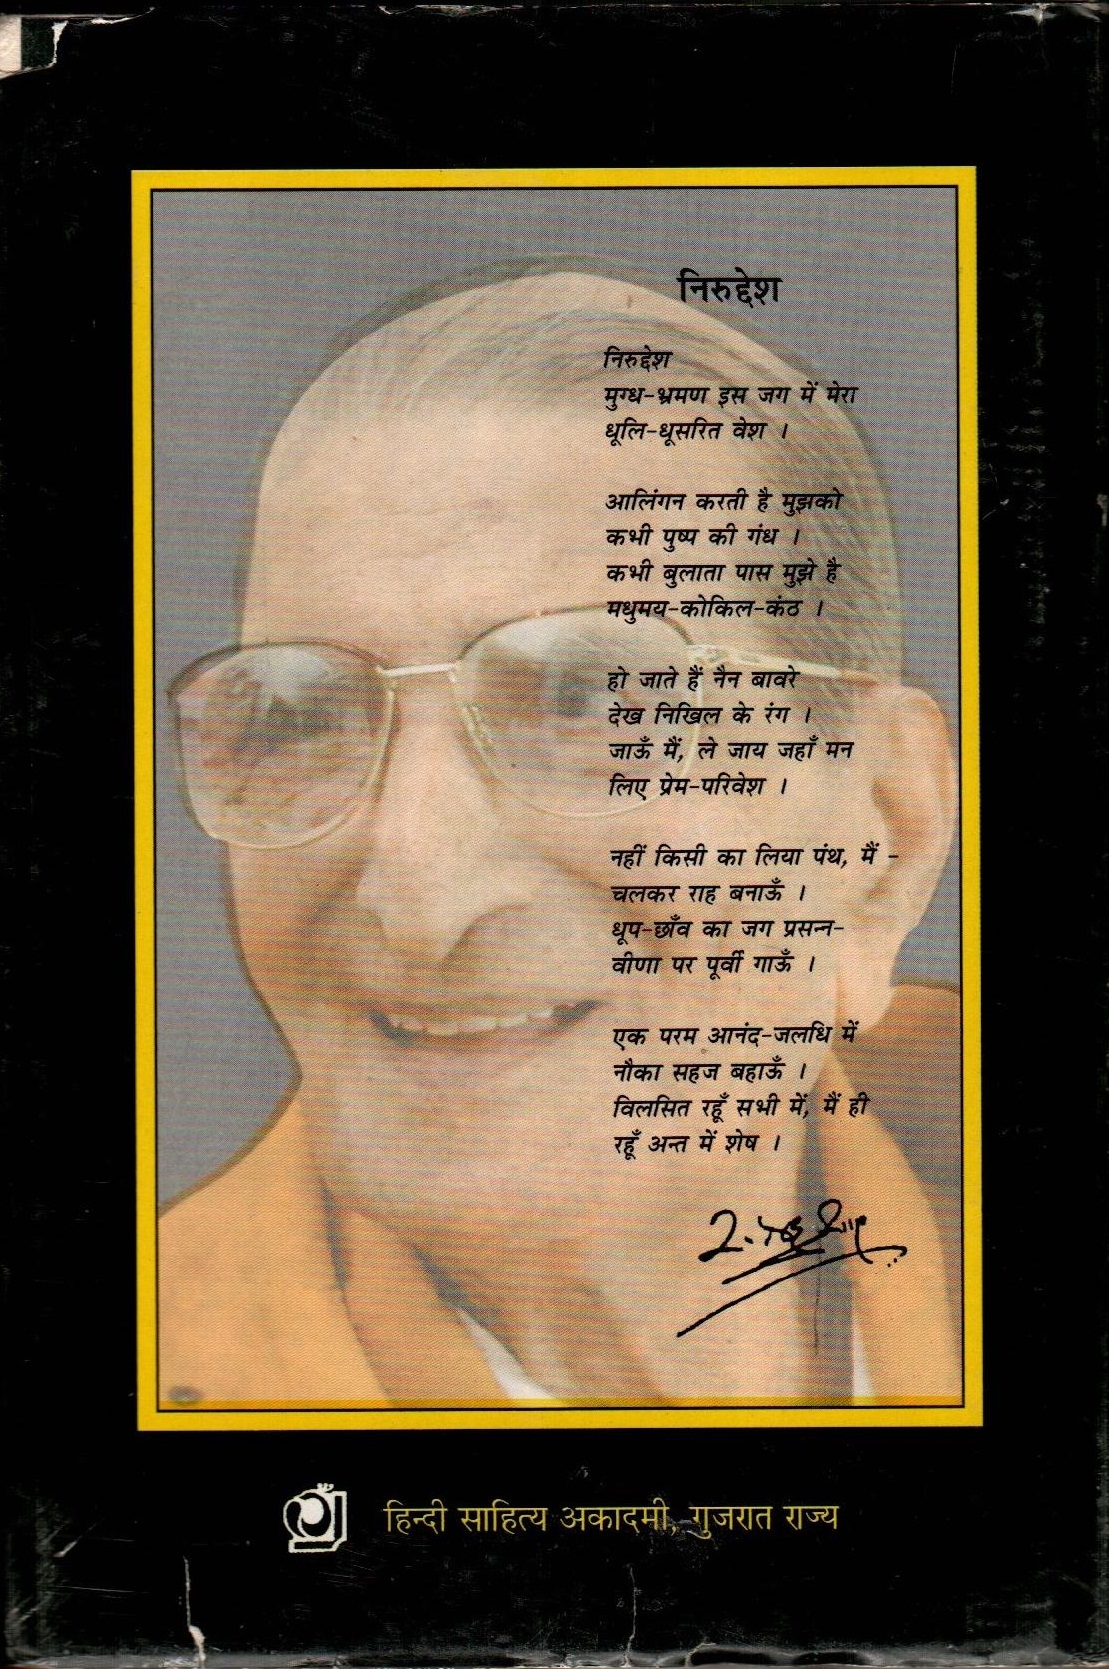 निरुद्देश
निरुद्देश
मुग्ध-भ्रमण इस जग में मेरा
धूलि-धूसरित वेश ।
आलिंगन करती है मुझको
कभी पुष्प की गंध ।
कभी बुलाता पास मुझे है
मधुमय-कोकिल-कंठ ।
हो जाते हैं नैन बावरे
देख निखिल के रंग ।
जाऊँ मैं, ले जाय जहाँ मन
लिए प्रेम-परिवेश ।
नहीं किसी का लिया पंथ, मैं -
चलकर राह बनाऊँ ।
धूप-छाँव का जग प्रसन्न-
वीणा पर पूर्वी गाऊँ ।
एक परम आनंद-जलधि में
नौका सहज बहाऊँ ।
विलसित रहूँ सभी में, मैं ही
रहूँ अन्त में शेष ।
हिन्दी साहित्य अकादमी, गुजरात राज्य